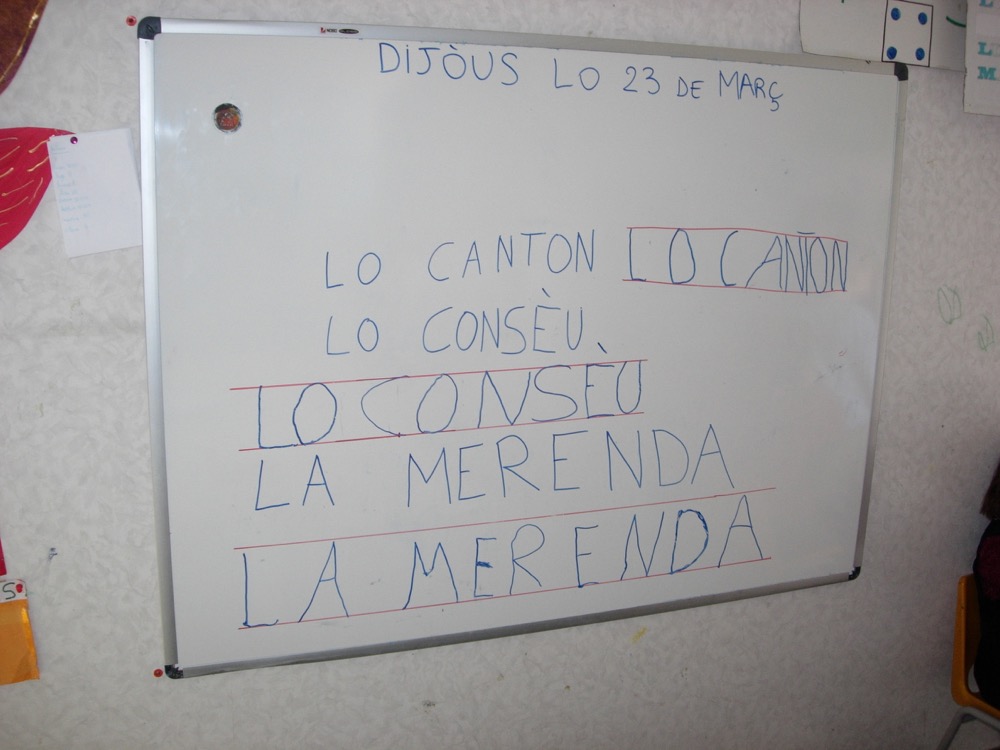 DIJÒUS LO 23 DE MARÇ
LO CANTON LO CANTON
LO CONSÈU
LO CONSÈU
LA MERENDA
LA MERENDA